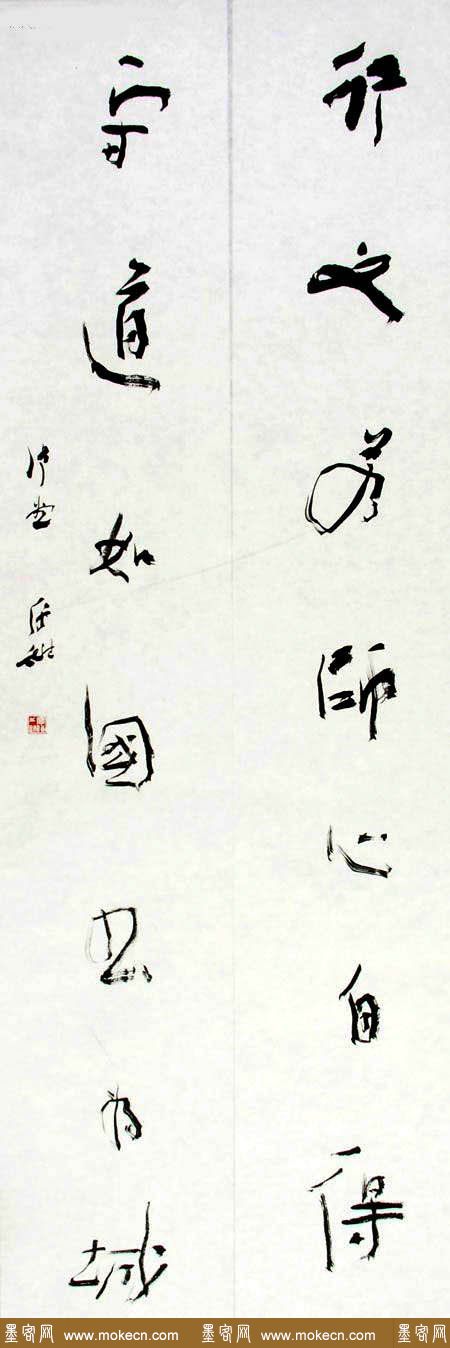 行文為師心自得
守道如國書為城
墨客网 www.mokecn.com 墨客网 www.mokecn.com